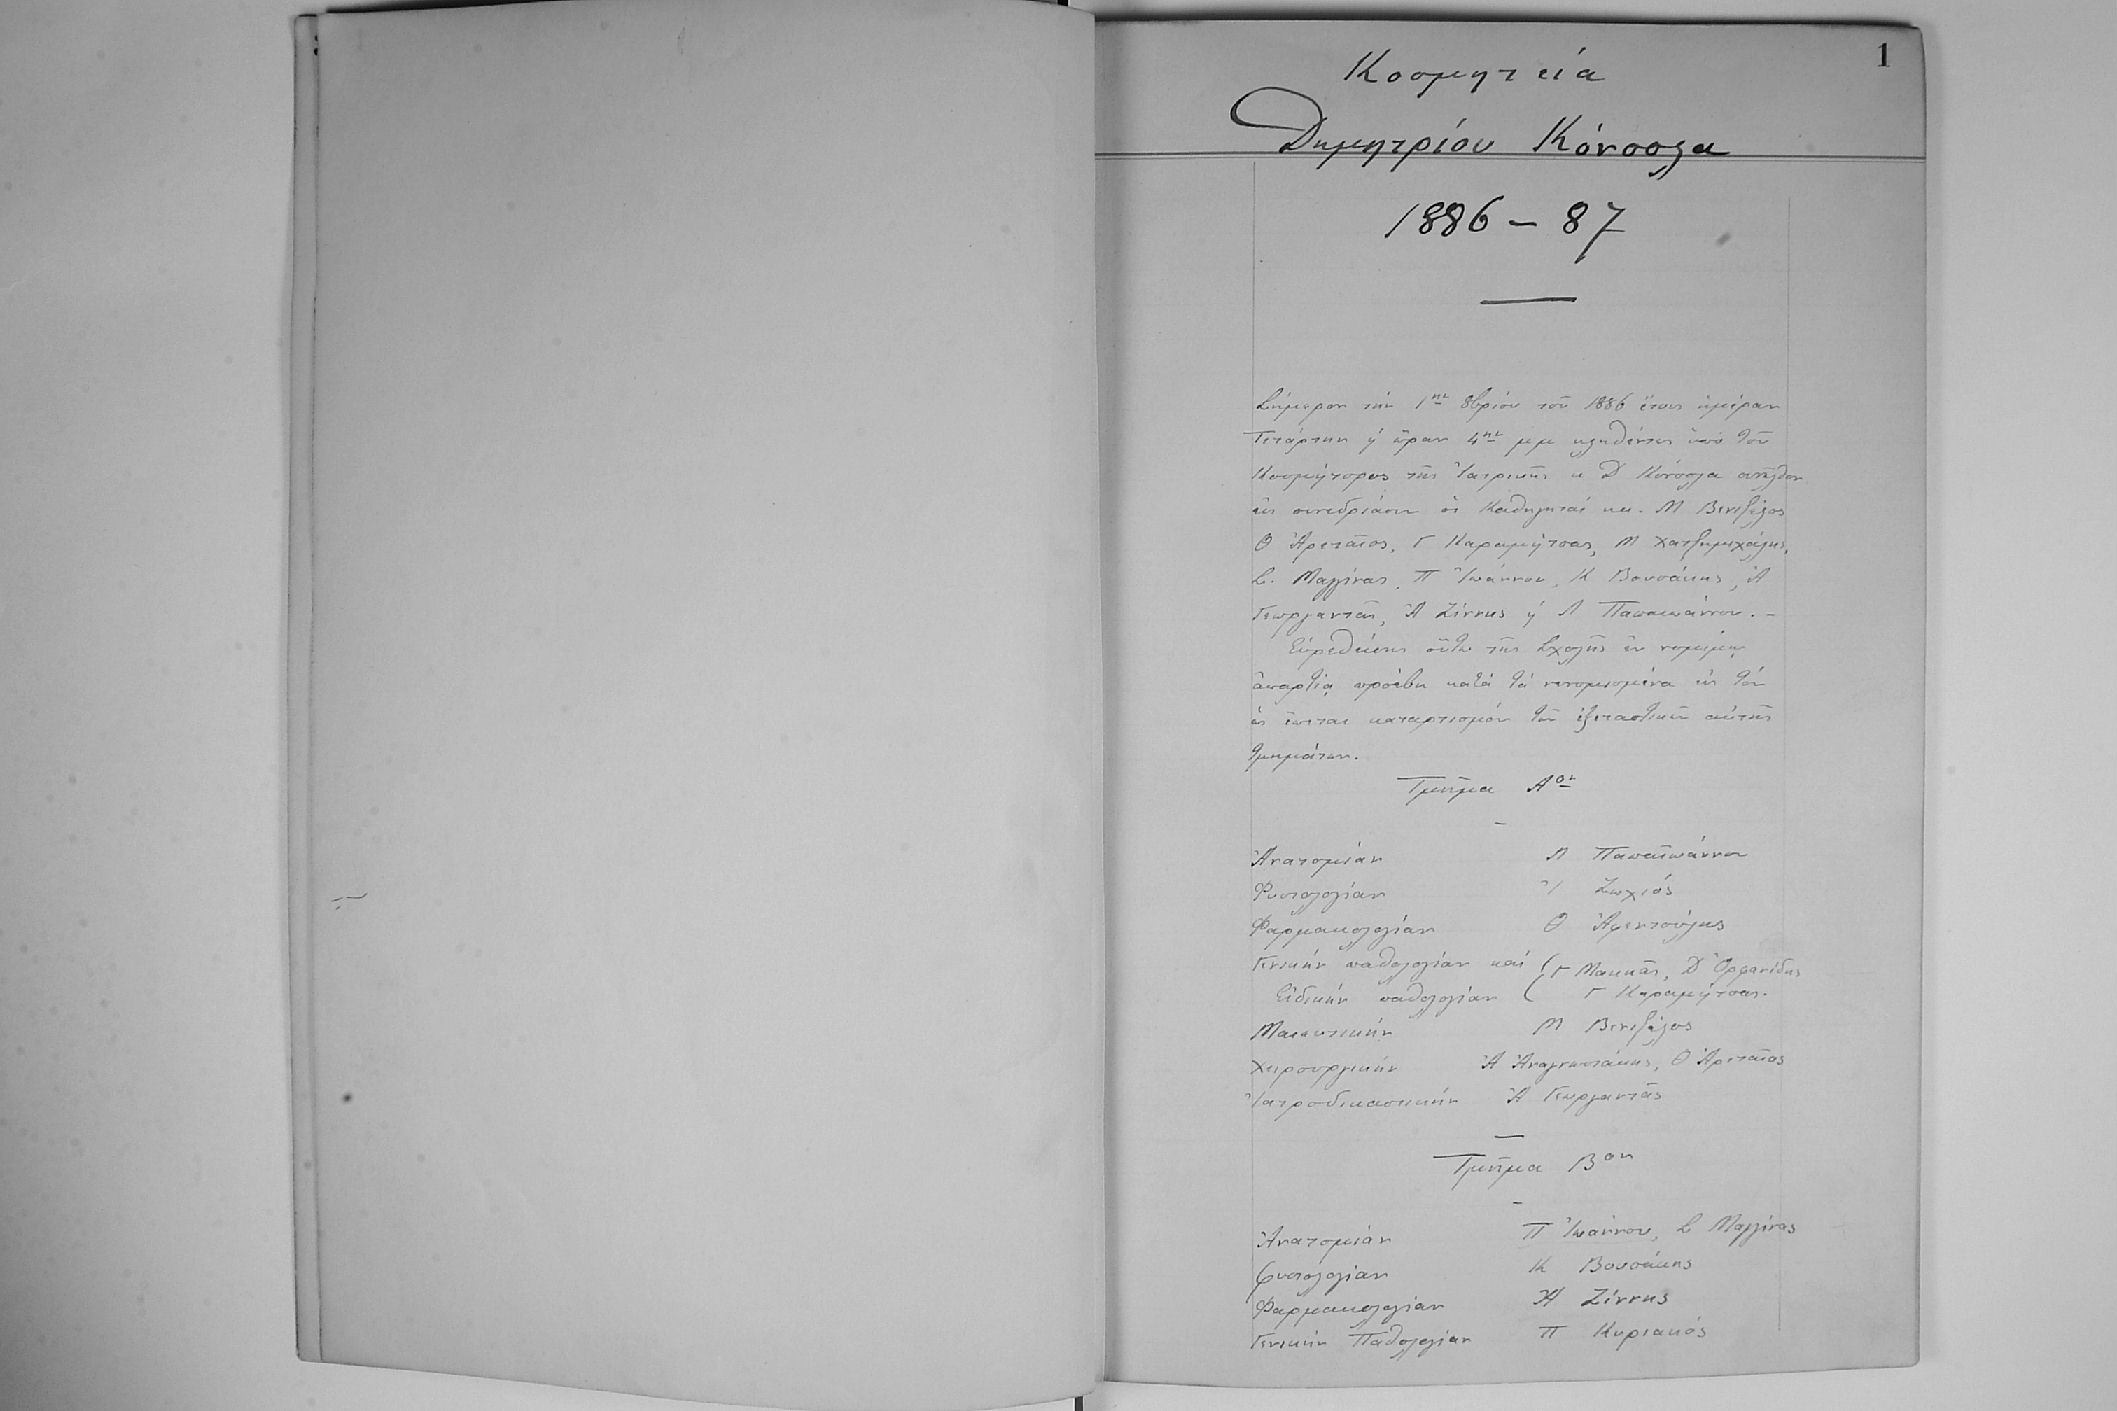 1
Κοσμητεία
Δημητρίου Κόνσολα
1886 – 87
Σήμερον τήν 1ην 8βρίου τοῦ 1886 ἔτους ἡμέραν
Τετάρτην ἡ ὥραν 4ην μμ κληθέντες ὑπό τοῦ
Κοσμήτορος τῆς Ἰατρικῆς κ Δ Κόνσολα συνῆλθον
εἰς συνεδρίασιν οἱ Καθηγηταί κκ. Μ Βενιζέλος
Θ Ἀρεταῖος, Γ Καραμήτσας, Μ Χατζημιχάλης,
Σ. Μαγγίνας, Π Ἰωάννου, Κ Βουσάκης, Ἀ
Γεωργαντᾶς, Ἀ Ζίννης ἡ Λ Παπαϊωάννου. –
Εὑρεθείσης οὕτω τῆς Σχολῆς ἐν νομίμῳ
ἀπαρτίᾳ προέβη κατά τά νενομισμένα εἰς τόν
ὡς ἕπεται καταρτισμόν τῶν ἐξεταστικῶν αὐτῆς
τμημάτων.
Τμῆμα Αον
Ἀνατομίαν Λ Παπαϊωάννου
Φυσιολογίαν Ἰ Ζωχιός
Φαρμακολογίαν Θ Ἀφεντούλης
Γενικήν παθολογίαν καί ( Γ Μακκᾶς, Δ Ὀρφανίδης
Εἰδικήν παθολογίαν ( Γ Καραμήτσας.
Μαιευτικήν Μ Βενιζέλος
Χειρουργικήν Ἀ Ἀναγνωστάκης, Θ Ἀρεταῖος
Ἰατροδικαστικήν Ἀ Γεωργαντᾶς
Τμῆμα Βον
Ἀνατομίαν Π Ἰωάννου, Σ Μαγγίνας
Φυσιολογίαν Κ Βουσάκης
Φαρμακολογίαν Ἀ Ζίννης
Γενικήν Παθολογίαν Π Κυριακός